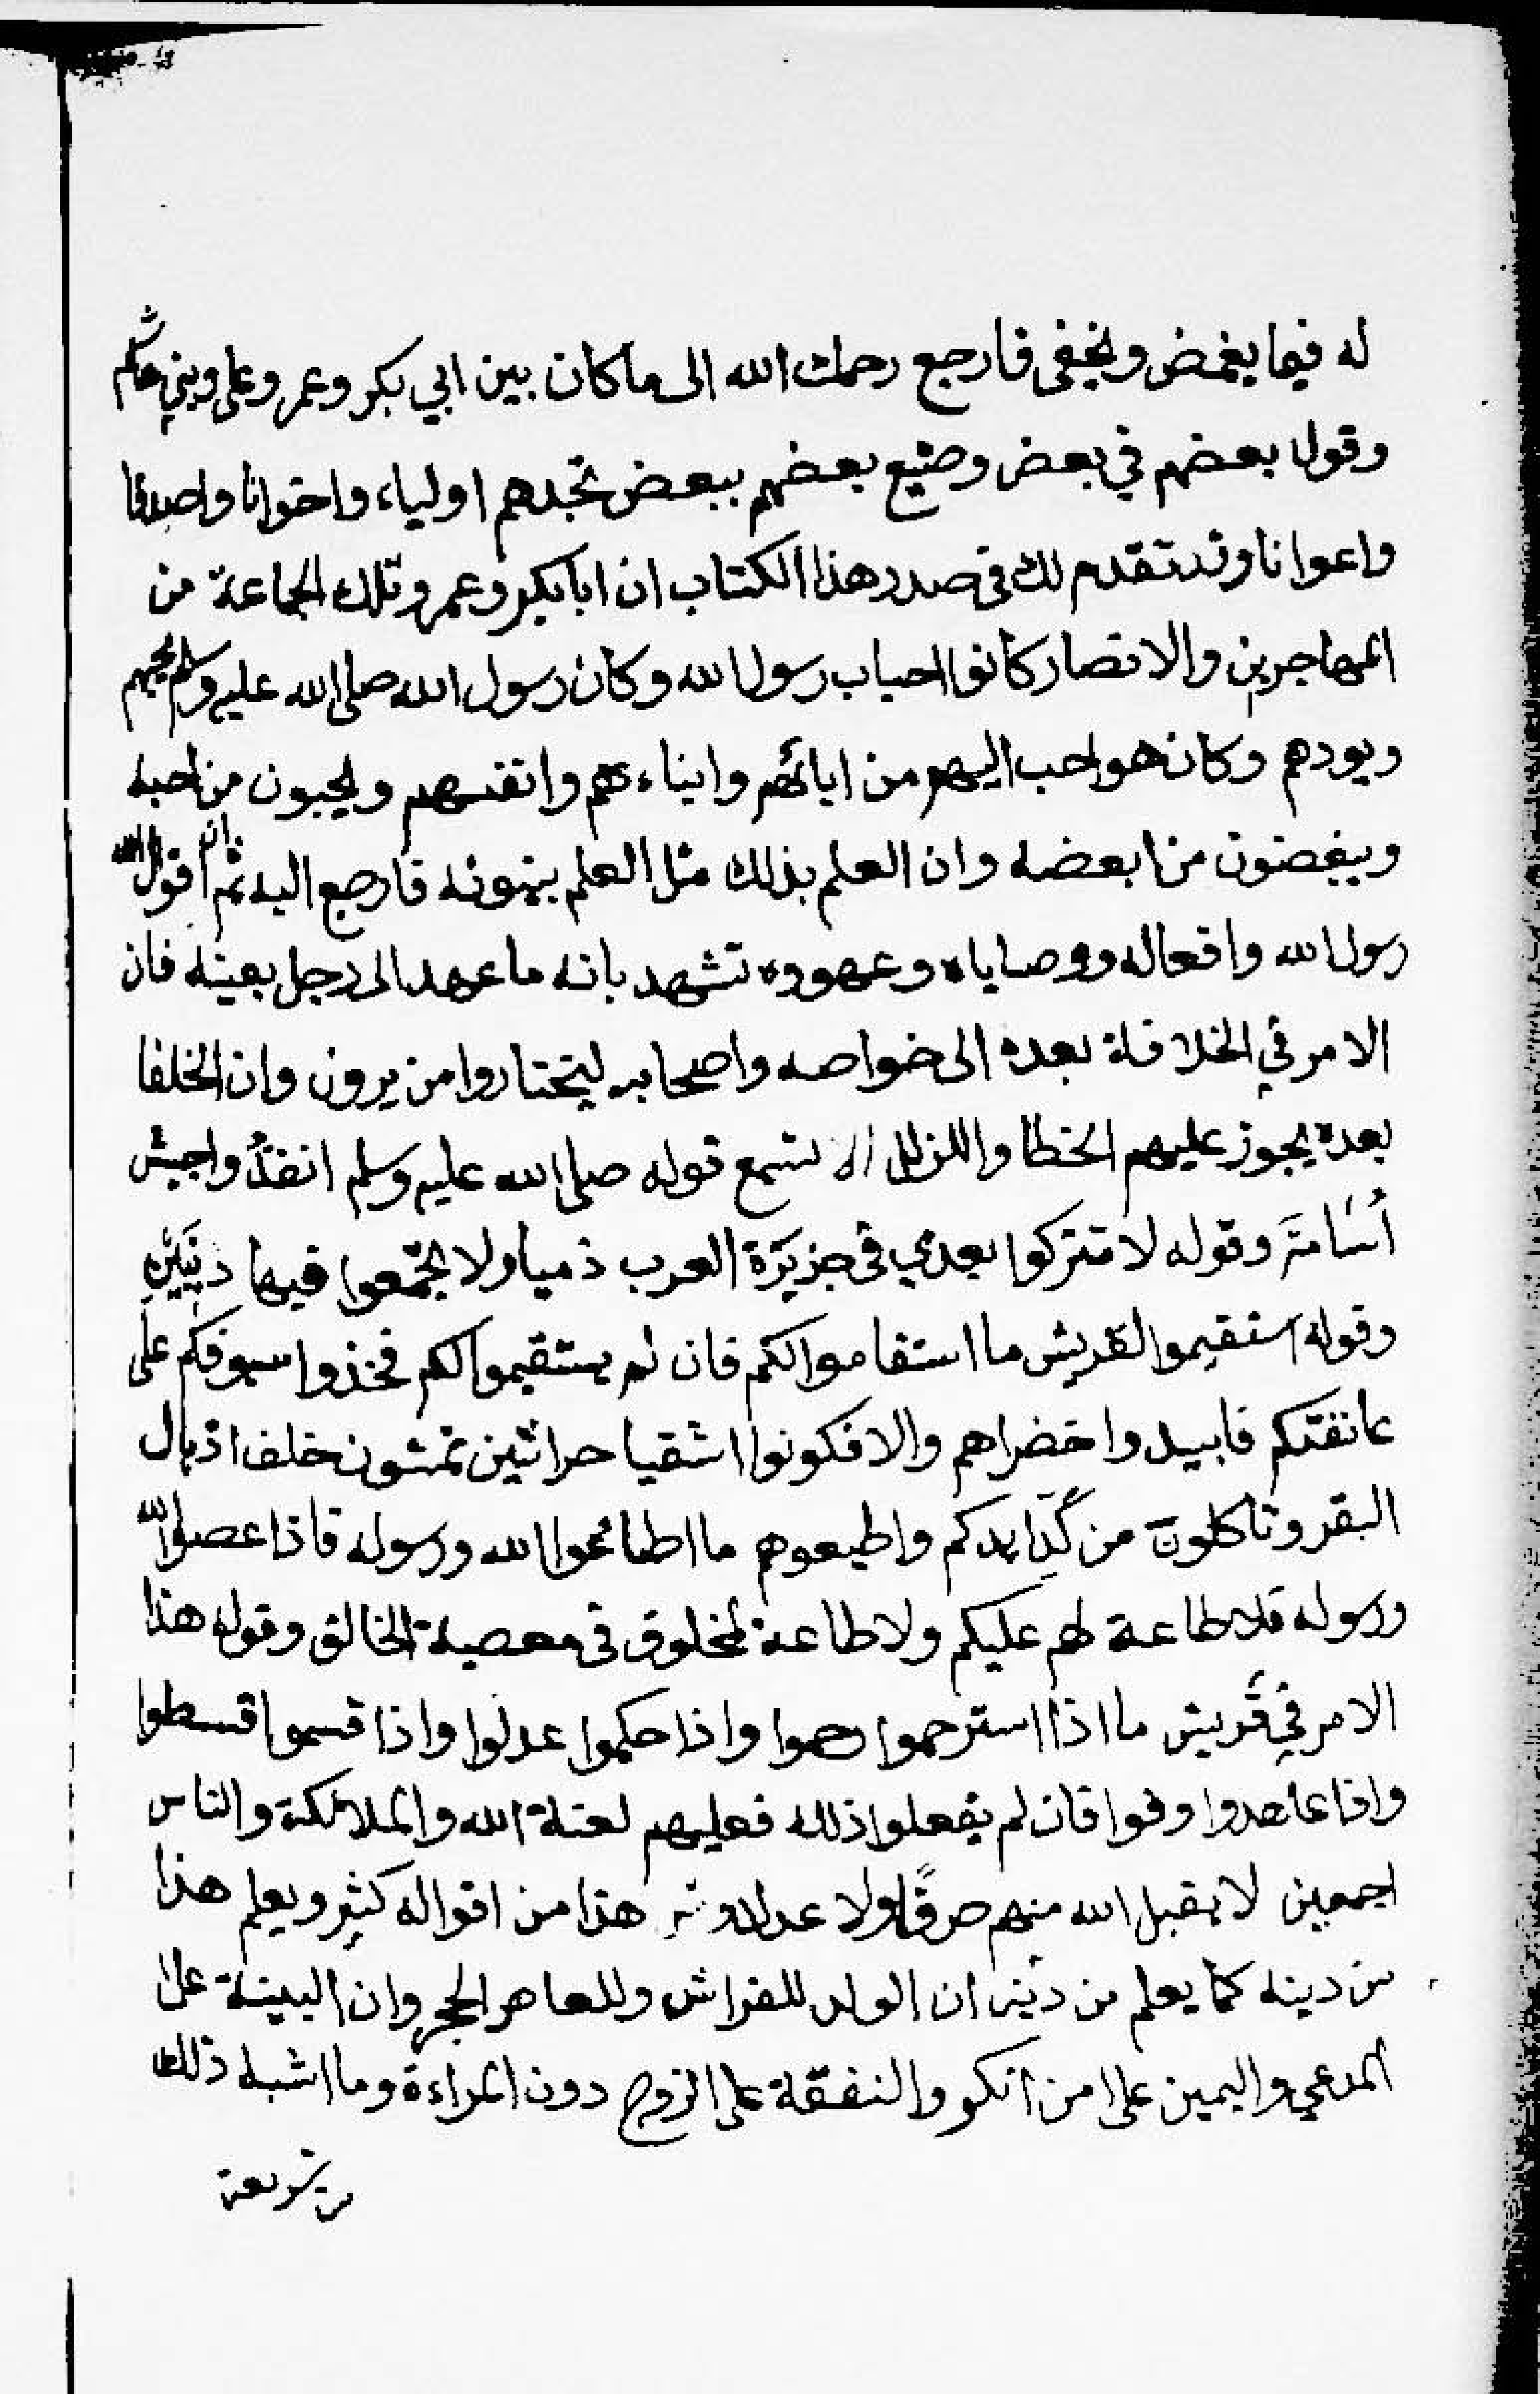 له فيما يغمض ويخفى فارجع رحمك الله الى ما كان بين ابي بكر وعمر وعلى وبني هاشم
وقول بعضهم في بعض وصنيع بعضهم ببعض تجدهم اولياء واخوانا واصدقا
واعوانا وقد تقدم لك في صدر هذا الكتاب ان ابا بكر وعمر وتلك الجماعة من
المهاجرين والانصار كانوا احباب رسول الله وكان رسول الله صلى الله عليه وسلم يحبهم
ويودهم وكان هو احب اليهم من ابائهم وابناءهم وانفسهم ويحبون من احبه
ويبغضون من ابغضه وان العلم بذلك مثل العلم بنبوته فارجع اليه ثم ان اقوال
رسول الله وافعاله ووصاياه وعهوده تشهد بانه ما عهد الى رجل بعينه فان
الامر في الخلافة بعده الى خواصه واصحابه ليختاروا من يرون وان الخلفا
بعده يجوز عليهم الخطا والزلل الا تسمع قوله صلى الله عليه وسلم انفذوا جيش
أسامة وقوله لا تتركوا بعدي في جزيرة العرب ذميا ولا يجتمعوا فيها دينين
وقوله استقيموا لقريش ما استقاموا لكم فان لم يستقيموا لكم فخذوا سيوفكم على
عاتقتكم فابيدوا خضراهم والا فكونوا اشقيا حراثين تمشون خلف اذيال
البقر وتاكلون من كد ايدكم واطيعوهم ما اطاعوا الله ورسوله فاذا عصوا الله
ورسوله فلا طاعة لهم عليكم ولا طاعة لمخلوق في معصية الخالق وقوله هذا
الامر في قريش ما اذا استرحموا رحموا واذا حكموا عدلوا واذا قسموا قسطوا
واذا عاهدوا وفوا فان لم يفعلوا ذلك فعليهم لعنة الله والملائكة والناس
اجمعين لا يقبل الله منهم صرفا ولا عدلا هذا من اقواله كثير ويعلم هذا
من دينه كما يعلم من دينه ان الولد للفراش وللعاهر الحجر وان البينة على
المدعي واليمين على من انكر والنفقة على الزوج دون المراءة وما اشبه ذلك
من شريعة